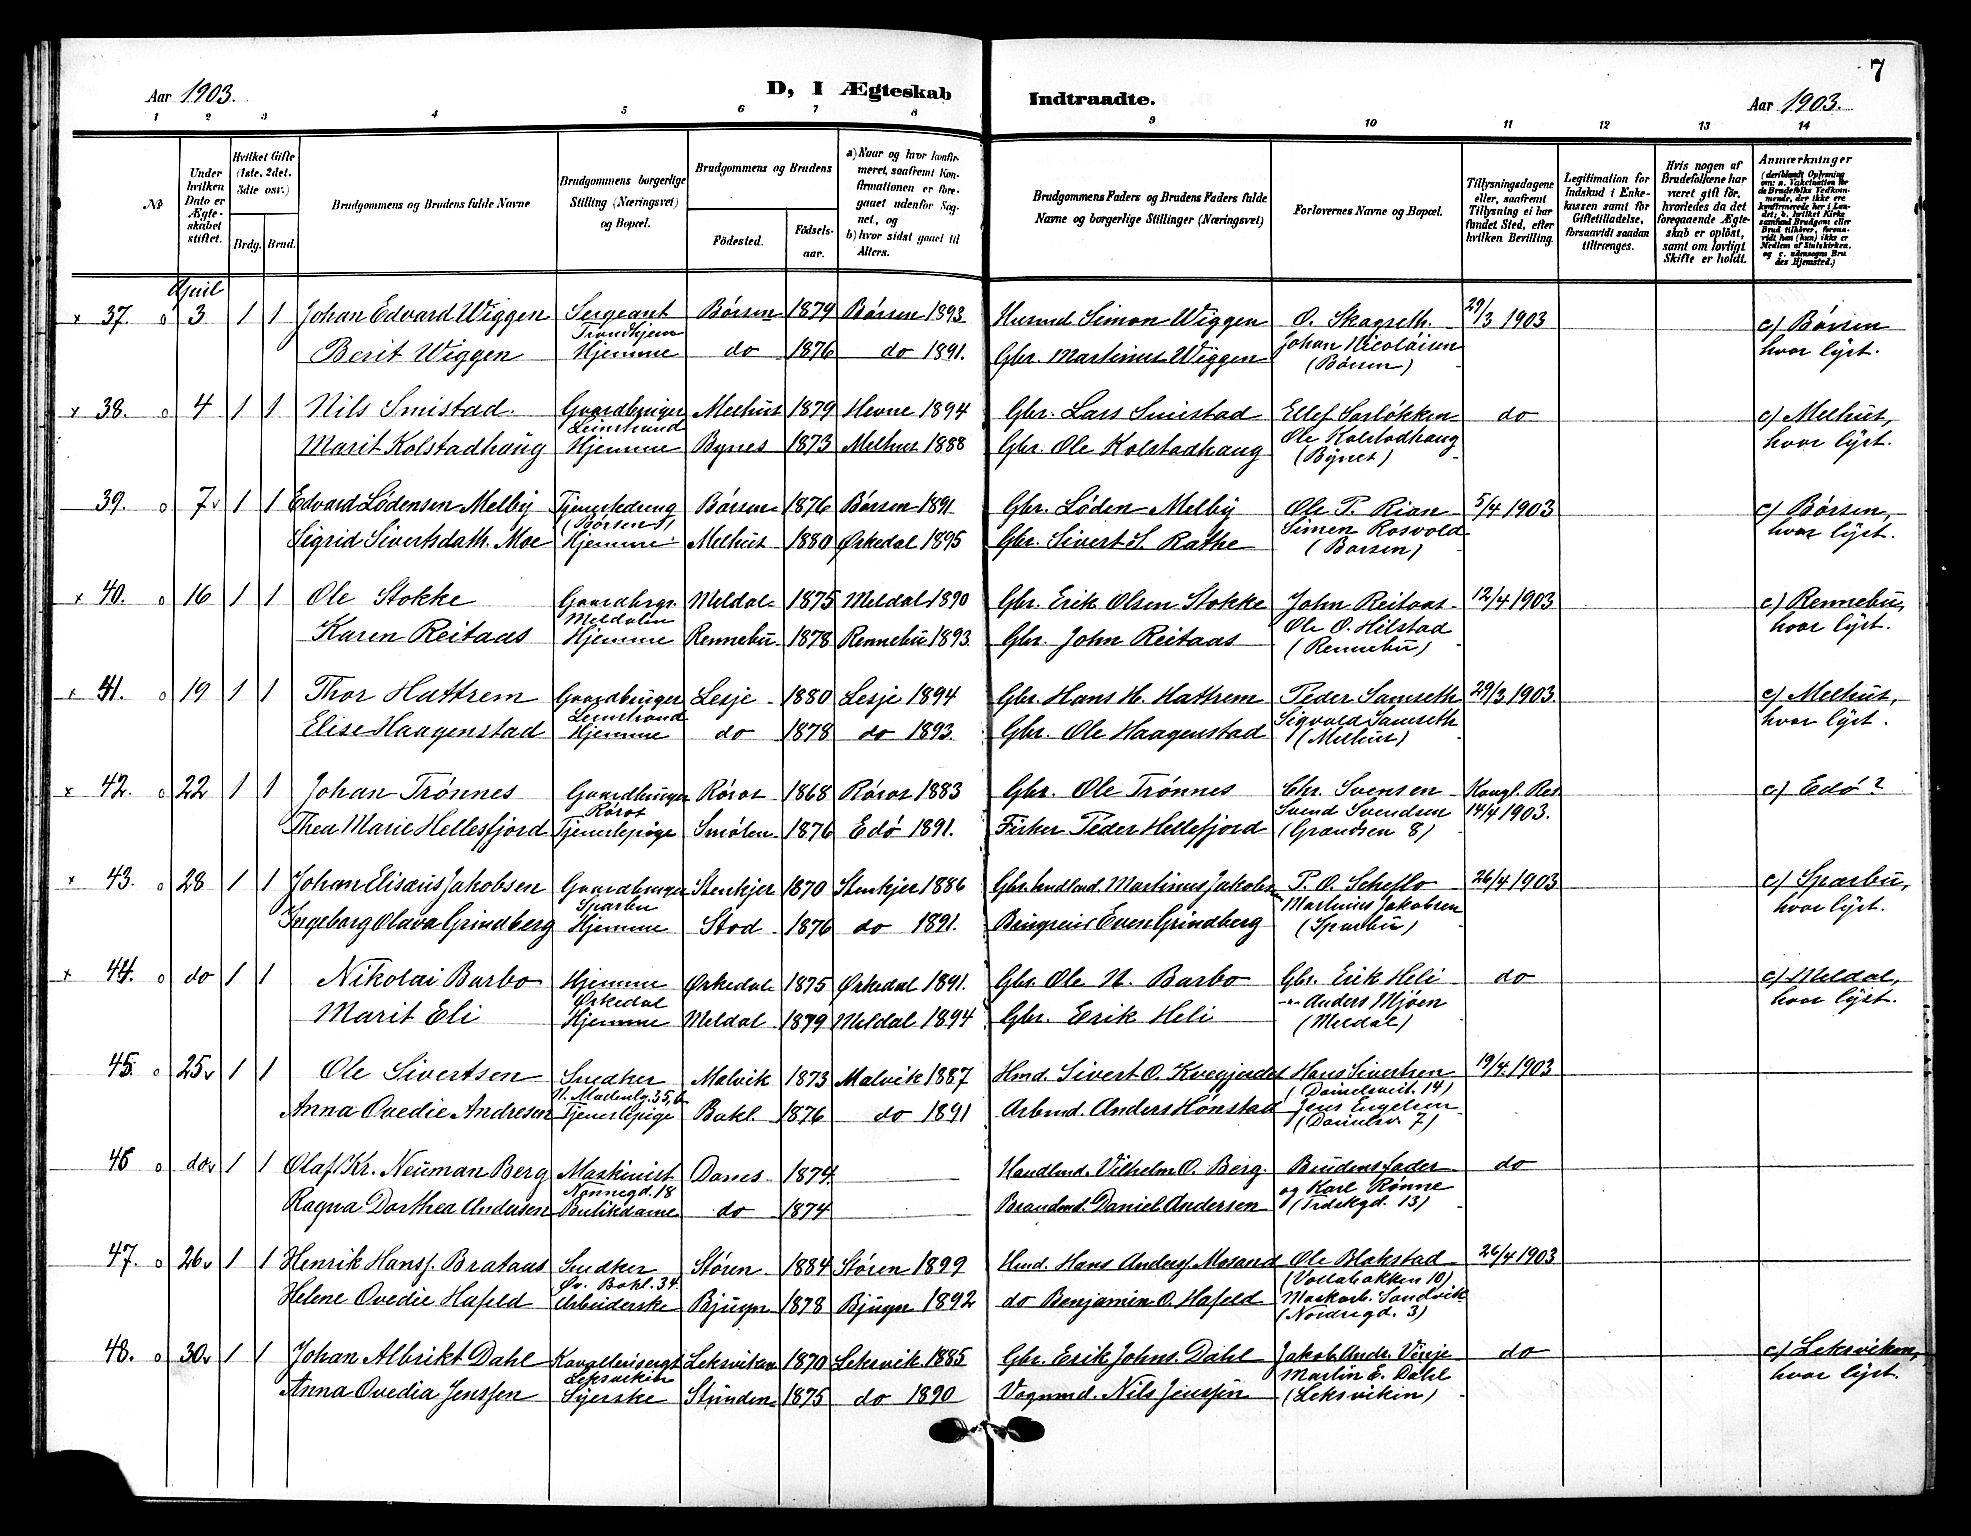 7
Aar 1903.
D, I Ægteskab Indtraadte.
Aar 1903.
1 2 3 4 5 6 7 8 9 10 11 12 13 14
No
Under hvilken Dato er Ægteskabet stiftet.
Hvilket Gifte (1ste, 2det, 3die osv.)
Brdg. Brud.
Brudgommens og Brudens fulde Navne
Brudgommens borgerlige Stilling (Næringsvei) og Bopæl.
Brudgommens og Brudens
Fødested.
Fødselsaar.
a) Naar og hvor konfirmeret, saafremt Konfirmationen er foregaaet udenfor Sognet, og
b) hvor sidst gaaet til Alters.
Brudgommens Faders og Brudens Faders fulde Navne og borgerlige Stillinger (Næringsvei)
Forlovernes Navne og Bopæl.
Tillysningsdagene eller, saafremt Tillysning ei har fundet Sted, efter hvilken Bevilling.
Legitimation for Indskud i Enkekassen samt for Giftetilladelse, forsaavidt saadan tiltrænges.
Hvis nogen af Brudefolkene har været gift før, hvorledes da det foregaaende Ægteskab er opløst, samt om lovligt Skifte er holdt.
Anmærkninger (deriblandt Oplysning om: a. Vakcination for de Brudefolks Vedkommende, der ikke ere konfirmerede her i Landet; b. hvilket Kirkesamfund Brudgom eller Brud tilhører, forsaavidt han (hun) ikke er Medlem af Statskirken, og c. udensogns Brudes Hjemsted.)
April
x 37. o 3 1 1 Johan Edvard Wiggen Sergeant Børsen 1879 Børsen 1893 Husmd Simon Wiggen O. Skagseth. 29/3 1903 c) Børsen
Trondhjem
Berit Wiggen Hjemme do 1876 do 1891. Gbr. Martinus Wiggen Johan Nicolaisen hvor lyst.
(Børsen)
x 38. o 4 1 1 Nils Smistad. Gaardbruger Melhus 1879 Hevne 1894 Gbr. Lars Smistad Ellef Sarløkken do c) Melhus,
Leinstrand
Marit Kolstadhaug Hjemme Bynes 1873 Melhus 1888 Gbr. Ole Kolstadhaug Ole Kolstadhaug hvor lyst.
(Bynes)
39. o 7v 1 1 Edvard Lødensen Melby Tjenestedreng Børsen 1876 Børsen 1891 Gbr. Løden Melby Ole P. Rian 5/4 1903 c) Børsen,
(Børsen)
Sigrid Sivertsdatt. Moe Hjemme Melhus 1880 Ørkedal 1895 Gbr. Sivert S. Rathe Simen Rosvold hvor lyst.
(Børsen)
x 40. o 16 1 1 Ole Stokke Gaardbrgr. Meldal 1875 Meldal 1890 Gbr. Erik Olsen Stokke John Reitaas 12/4 1903 c) Rennebu,
Meldalen
Karen Reitaas Hjemme Rennebu 1878 Rennebu 1893. Gbr. John Reitaas Ole O. Hilstad hvor lyst.
(Rennebu)
x 41. o 19 1 1 Thor Hattrem Gaardbruger Lesje 1880 Lesje 1894 Gbr. Hans H. Hattrem Peder Samseth 29/3 1903. c) Melhus,
Leinstrand
Elise Haagenstad Hjemme do 1878 do 1893. Gbr. Ole Haagenstad Sigvald Samseth hvor lyst.
(Melhus)
x 42. o 22 1 1 Johan Trønnes Gaardbruger Røros 1868 Røros 1883 Gbr. Ole Trønnes Chr. Svensen Kongl. Res c) Edø?
Røros
Thea Marie Hellesfjord Tjenestepige Smølen 1876 Edø 1891. Fisker Peder Hellefjord Svend Svendsen 14/4 1903.
(Grandsen 8)
x 43. o 28 1 1 Johan Elisæus Jakobsen Gaardbruger Stenkjer 1870 Stenkjer 1886 Gbr. Martinus Jakobsen P. O. Scheflo 26/4 1903 c) Sparbu,
Sparbu
Ingeborg Olava Grindberg Hjemme Stod 1876 do 1891. Even Grindberg Martinus Jakobsen hvor lyst.
(Sparbu)
x 44. o do 1 1 Nikolai Barbo Hjemme Ørkedal 1875 Ørkedal 1891. Gbr. Ole N. Barbo Gbr. Erik Heli do c) Meldal,
Ørkedal
Marit Eli Hjemme Meldal 1879 Meldal 1894 Gbr. Erik Heli -"- Anders Mjøen hvor lyst.
(Meldal)
45. o 25v 1 1 Ole Sivertsen Snedker Malvik 1873 Malvik 1887 Hmd. Sivert O. Hans Sivertsen 19/4 1903
35, b (Danielsveit. 14)
Anna Ovedie Andresen Tjenestepige Bakl. 1876 do 1891 Arbmd. Anders Hønstad Jens Engelsen
(Danielsv. 7)
46 o dov 1 1 Olaf Kr. Neuman Berg Maskinist Doms 1874. Handlmd. Vilhelm O. Berg. Brudens fader do
Nonnegd. 18
Ragna Dorthea Andersen Butikdame do 1874 Daniel Andersen og Karl Rønne
(Trdskgd. 13)
47. o 26v 1 1 Henrik Hanss. Brataas Snedker Støren 1884 Støren 1899 Hmd. Hans Anders. Ole Blakstad 26/4 1903
Øv. Bakl. 34. (Vollabakken 10)
Helene Ovedie Hafeld Arbeiderske Bjugn 1878 Bjugn 1892 do Benjamin O. Hafeld Maskarb. Sandvik
(Nordregd. 3)
48. o 30v 1 1 Johan Albrikt Dahl Kavallerisergt Leksviken 1870 Leksvik 1885 Gbr. Erik Johns. Dahl Jakob Andr. Vinje do c) Leksviken,
Leksviken
Anna Ovedia Jenssen Syerske Strinden 1875 do 1890 Vognmd. Nils Jenssen Martin E. Dahl hvor lyst.
(Leksviken)